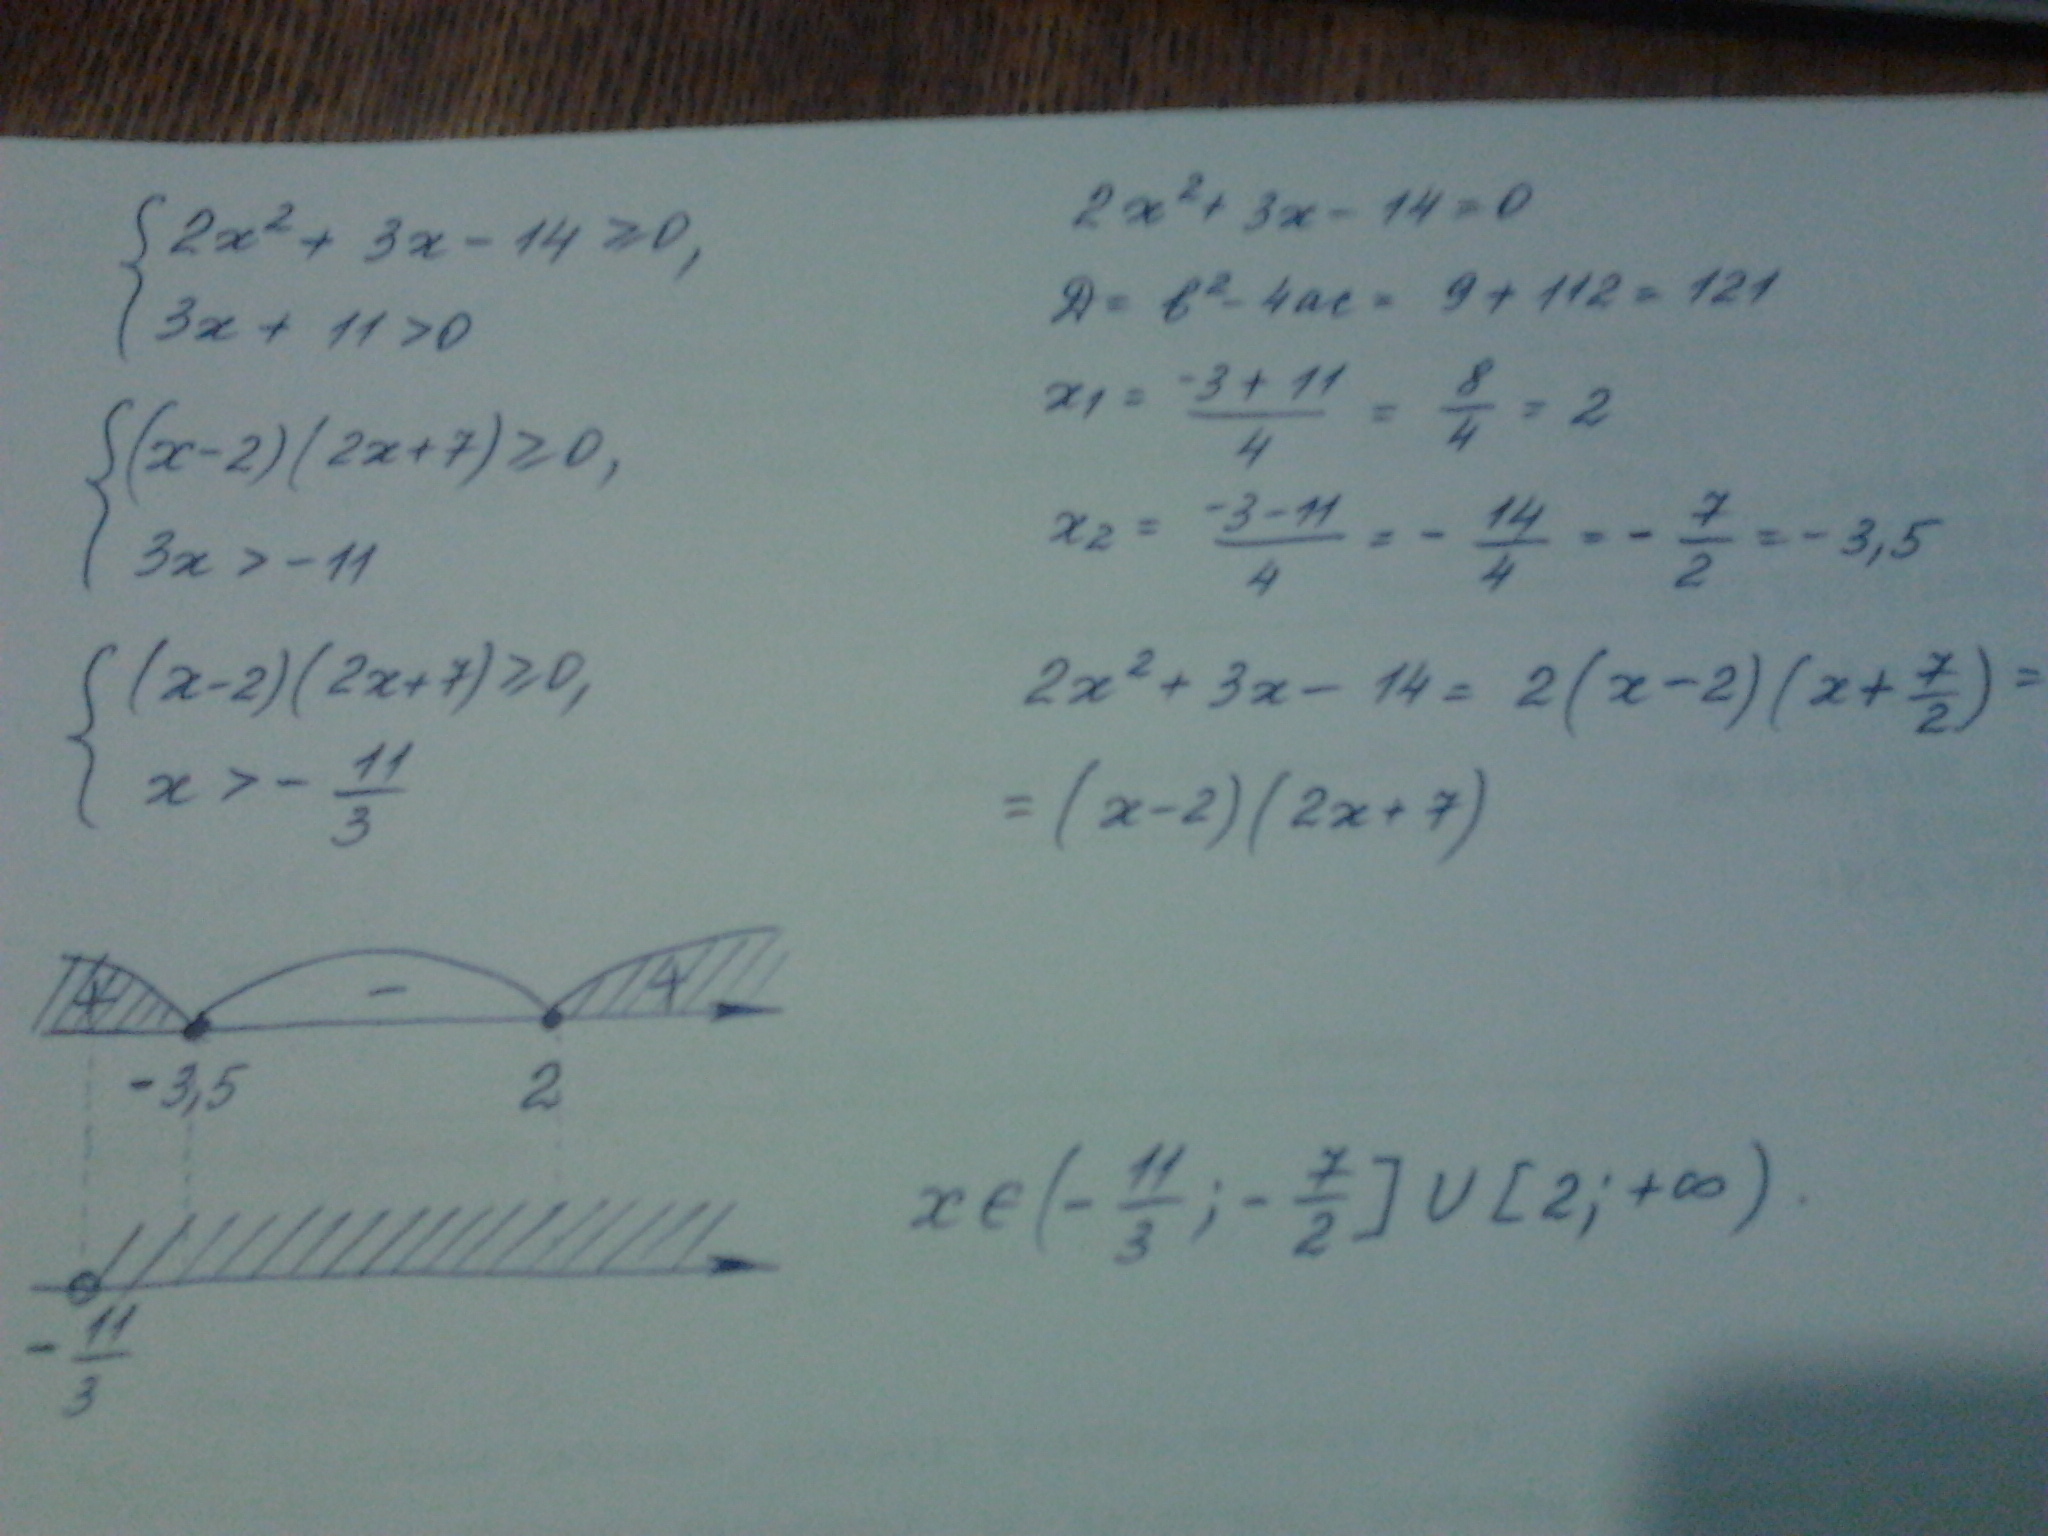 { 2x² + 3x - 14 ≥ 0,
3x + 11 > 0
{ (x-2)(2x+7) ≥ 0,
3x > -11
{ (x-2)(2x+7) ≥ 0,
x > - 11/3
+ - +
-3,5 2
- 11/3
2x² + 3x - 14 = 0
D = b² - 4ac = 9 + 112 = 121
x₁ = (-3 + 11)/4 = 8/4 = 2
x₂ = (-3 - 11)/4 = - 14/4 = - 7/2 = -3,5
2x² + 3x - 14 = 2(x-2)(x + 7/2) =
= (x-2)(2x+7)
x ∈ (- 11/3 ; - 7/2] ∪ [2; +∞).